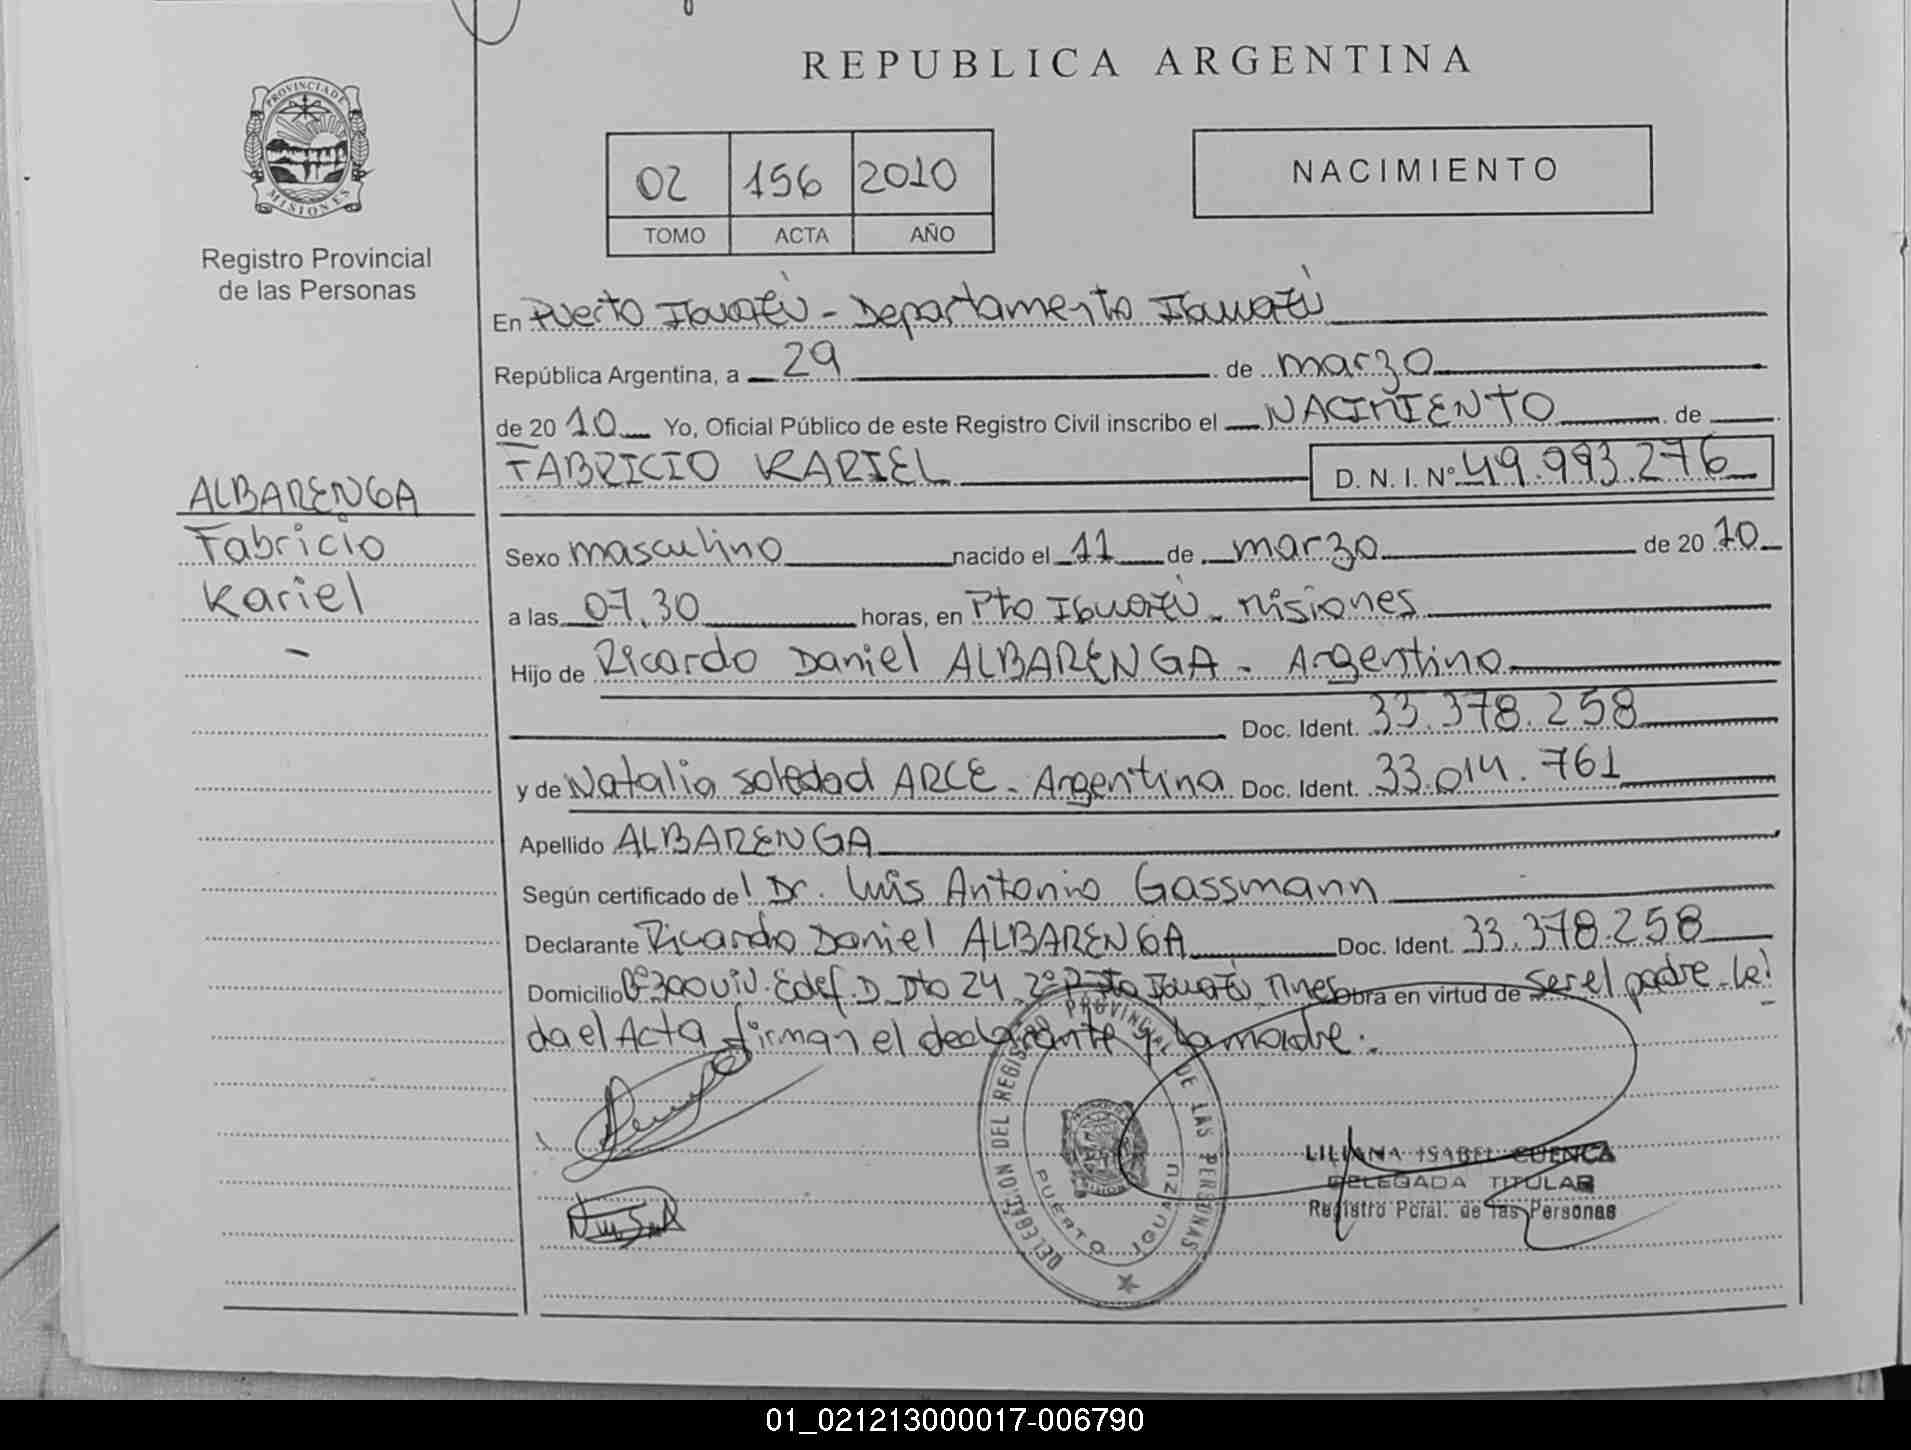 REPUBLICA ARGENTINA
PROVINCIA DE MISIONES
Registro Provincial
de las Personas
02 156 2010
TOMO ACTA AÑO
NACIMIENTO
En Puerto Iguazú - Departamento Iguazú
República Argentina, a 29 de marzo
de 2010 Yo, Oficial Público de este Registro Civil inscribo el NACIMIENTO de
FABRICIO KARIEL D. N. I. Nº 49.993.276
ALBARENGA
Fabricio
Kariel
Sexo masculino nacido el 11 de marzo de 2010
a las 07,30 horas, en Pto Iguazú - Misiones
Hijo de Ricardo Daniel ALBARENGA - Argentino
Doc. Ident. 33.378.258
y de Natalia Soledad ARCE - Argentina Doc. Ident. 33.014.761
Apellido ALBARENGA
Según certificado del Dr. Luis Antonio Gassmann
Declarante Ricardo Daniel ALBARENGA Doc. Ident. 33.378.258
Domicilio Bº 300 viv. Edef. D Dto 24 2º P Pto Iguazú Mnes obra en virtud de ser el padre. Leí
da el Acta firman el declarante y la madre.
DELEGACION DEL REGISTRO PROVINCIAL DE LAS PERSONAS
PUERTO IGUAZU
LILIANA ISABEL CUENCA
DELEGADA TITULAR
Registro Pcial. de las Personas
01_021213000017-006790